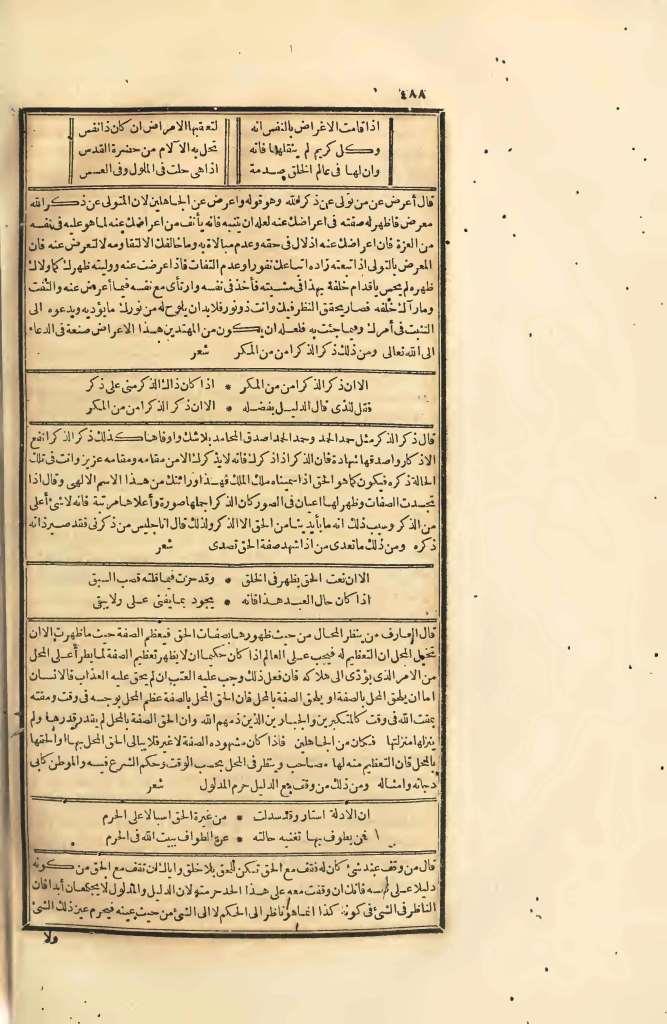 ٤٨٨
اذا قامت الاغراض بالنفس انه لتعقبها الامراض ان كان ذا نفس
وكل كريم لم ينقلها فانه تحل به الآلام من حضرة القدس
وان لها فى عالم الخلق صدمة اذا هى حلت فى الملول وفى العسس
قال أعرض عن من تولى عن ذكر الله وهو قوله واعرض عن الجاهلين لان المتولى عن ذكر الله
معرض فاظهر له صفته فى اعراضك عنه لعله ان يتنبه فانه يأنف من اعراضك عنه لما هو عليه فى نفسه
من العزة فان اعراضك عنه اذلال فى حقه وعدم مبالاة به وما خالفك الا لتقاومه لا لتعرض عنه فان
المعرض بالتولى اذا تبعته زاده اتباعك نفورا وعدم التفات فاذا اعرضت عنه ووليته ظهرك كما ولاك
ظهره لم يحس باقدام خلفه يهذا فى مشيته فأخذ فى نفسه وارتأى مع نفسه فيما أعرض عنه والتفت
وما رآك خلفه فصار يحقق النظر فيك وانت ذو نور فلا بد ان يلوح له من نورك ما يؤديه ويدعوه الى
التثبت فى أمرك وفيما جئت به فلعله ان يكون من المهتدين هذا الاعراض صنعة فى الدعاء
الى الله تعالى ومن ذلك ذكر الذكر امن من المكر شعر
الا ان ذكر الذكر امن من المكر * اذا كان ذاك الذكر منى على ذكر
فقل للذى قال الدليل بفضله * الا ان ذكر الذكر امن من المكر
قال ذكر الذكر مثل حمد الحمد وحمد الحمد اصدق المحامد بلا شك واوفاها كذلك ذكر الذكر انفع
الاذكار واصدقها شهادة فان الذكر اذا ذكرك فانه لا يذكرك الا من مقامه ومقامه عزيز وانت فى تلك
الحالة ذكره فيكون كما هو الحق اذا سميناه ملك الملك فهذا ورائتك من هذا الاسم الالهى وقال اذا
تجسدت الصفات وظهر لها اعيان فى الصور كان الذكر اجملها صورة وأعلاها مرتبة فانه لا شئ أعلى
من الذكر وسبب ذلك انه ما بأيدينا من الحق الا الذكر ولذلك قال انا جليس من ذكرنى فقد صير ذاته
ذكره ومن ذلك ما تعدى من اذا شهد صفة الحق تصدى شعر
الا ان نعت الحق يظهر فى الخلق * وقد حزت فيما قلته قصب السبق
اذا كان حال العبد هذا فانه * يجود بما يفنى على ولا يبقى
قال العارف من ينظر المحال من حيث ظهورها بصفات الحق فيعظم الصفة حيث ما ظهرت الا ان
تجهل المحل ان التعظيم له فيجب على العالم اذا كان حكيما ان لا يظهر تعظيم الصفة لما يطرأ على المحل
من الامر الذى يؤدى الى هلاكه فان فعل ذلك وجب عليه العتب ان لم يحق عليه العذاب فالانسان
اما ان يلحق المحل بالصفة او يلحق الصفة بالمحل فان الحق المحل بالصفة عظم المحل بوجه فى وقت ومقته
بمقت الله فى وقت كالمتكبرين والجبارين الذين ذمهم الله وان الحق الصفة بالمحل لم يقدر قدرها ولم
ينزلها منزلتها فكان من الجاهلين فاذا كان مشهوده الصفة لا غير فلا يبالى الحق المحل بها او ألحقها
بالمحل فان التعظيم منه لها مصاحب وينظر فى المحل بحسب الوقت وحكم الشرع فيه والموطن كابى
دجانه وامثاله ومن ذلك من وقف مع الدليل حرم المدلول شعر
ان الادلة استار وقد سدلت * من غيرة الحق اسبالا على الحرم
فمن يطوف بها تغنيه حالته * عن الطواف ببيت الله فى الحرم
قال من وقف عند شئ كان له فقف مع الحق تكن للحق بلا خلق واياك ان تقف مع الحق من كونه
دليلا على نفسه فانك ان وقفت معه على هذا الحد حرمته لان الدليل والمدلول لا يجتمعان أبدا فان
الناظر فى الشئ فى كونه كذا انما هو ناظر الى الحكم لا الى الشئ من حيث عينه فيحرم عين ذلك الشئ
ولا